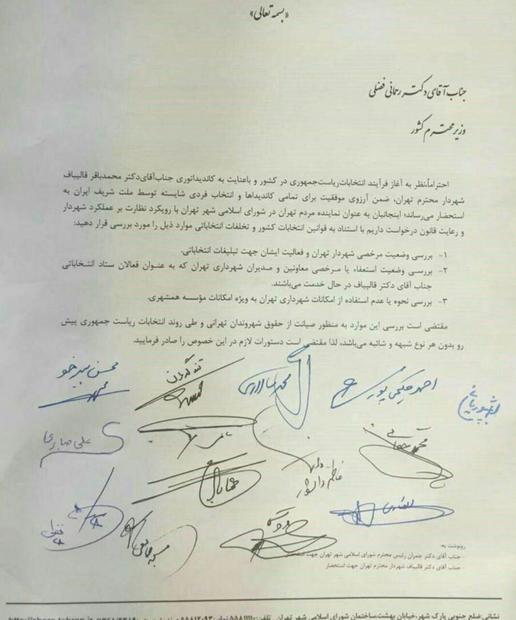 «بسمه تعالی»
جناب آقای دکتر رحمانی فضلی
وزیر محترم کشور
احتراماً،نظر به آغاز فرآیند انتخابات‌ریاست‌جمهوری در کشور و باعنایت به کاندیداتوری جناب‌آقای‌دکتر محمدباقر قالیباف
شهردار محترم تهران، ضمن آرزوی موفقیت برای تمامی کاندیداها و انتخاب فردی شایسته توسط ملت شریف ایران به
استحضار می‌رساند؛ اینجانبان به عنوان نماینده مردم تهران در شورای اسلامی شهر تهران با رویکرد نظارت بر عملکرد شهردار
و رعایت قانون درخواست داریم با استناد به قوانین انتخابات کشور و تخلفات انتخاباتی موارد ذیل را مورد بررسی قرار دهید:
۱- بررسی وضعیت مرخصی شهردار تهران و فعالیت ایشان جهت تبلیغات انتخاباتی.
۲- بررسی وضعیت استعفاء یا مرخصی معاونین و مدیران شهرداری تهران که به عنوان فعالان ستاد انتخاباتی
جناب آقای دکتر قالیباف در حال خدمت می‌باشند.
۳- بررسی نحوه یا عدم استفاده از امکانات شهرداری تهران به ویژه امکانات مؤسسه همشهری.
مقتضی است بررسی این موارد به منظور صیانت از حقوق شهروندان تهرانی و طی روند انتخابات ریاست جمهوری پیش
رو بدون هر نوع شبهه و شائبه می‌باشد، لذا مقتضی است دستورات لازم در این خصوص را صادر فرمایید.
احمد حکیمی پور
محمد سالاری
محسن سرخو
علی صابری
فاطمه دانشور
رونوشت به:
- جناب آقای دکتر چمران رئیس محترم شورای اسلامی شهر تهران جهت استحضار
- جناب آقای دکتر قالیباف شهردار محترم تهران جهت استحضار
نشانی:ضلع جنوبی پارک شهر،خیابان بهشت،ساختمان شورای اسلامی شهر تهران تلفن: